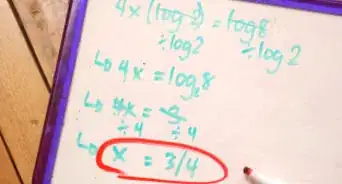 4x (log 2) = log8
÷log2 ÷log 2
↳ 4x = log₂8
↳ 4x = 3
÷4 ÷4
↳ x = 3/4